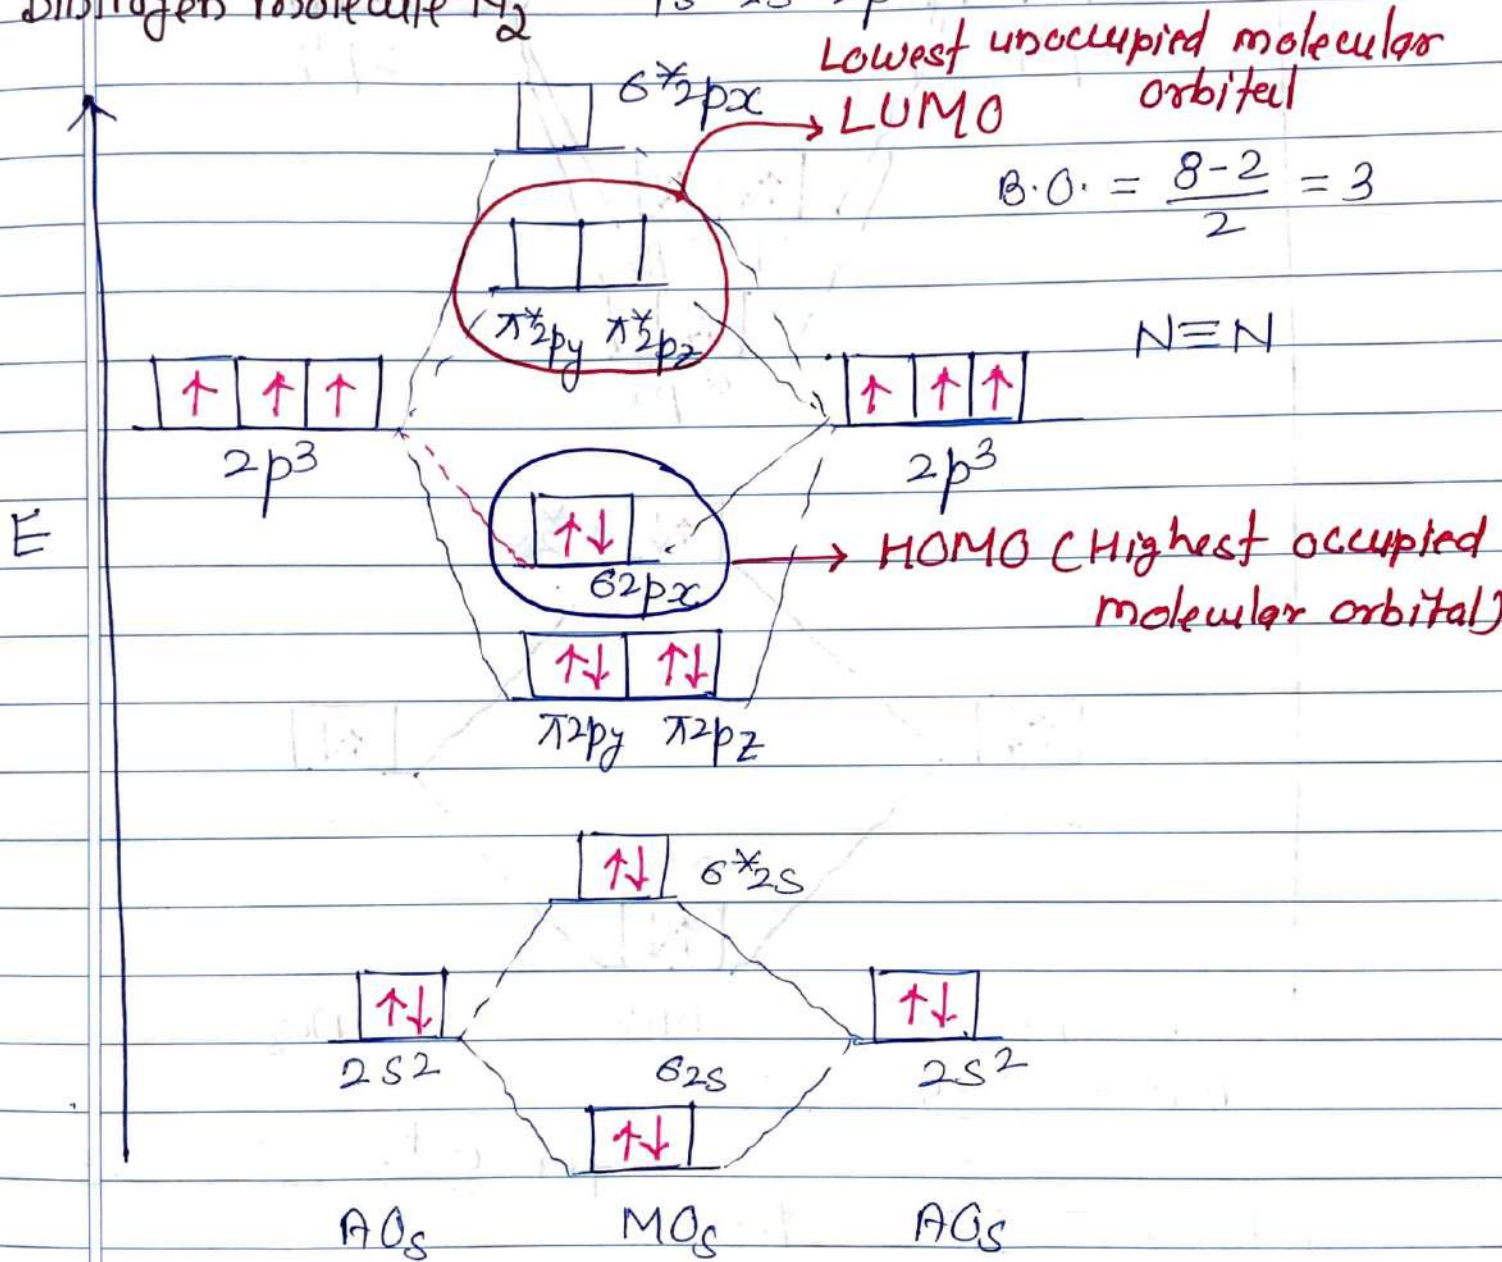 Dinitrogen molecule N2
6*2px
Lowest unoccupied molecular
orbital
LUMO
B.O. = 8-2/2 = 3
π*2py π*2pz
N≡N
↑ ↑ ↑
↑ ↑ ↑
2p3
2p3
E
↑↓
62px
HOMO (Highest occupied
molecular orbital)
↑↓ ↑↓
π2py π2pz
↑↓ 6*2s
↑↓
↑↓
2s2
62s
2s2
↑↓
AOs
MOs
AOs